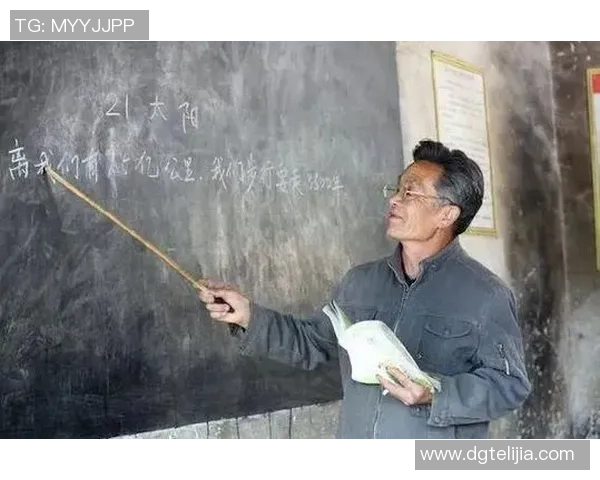 TG: MYYJJPP
21 太阳
离我们有1.5亿公里,我们步行要走3500年
www.dgtelijia.com